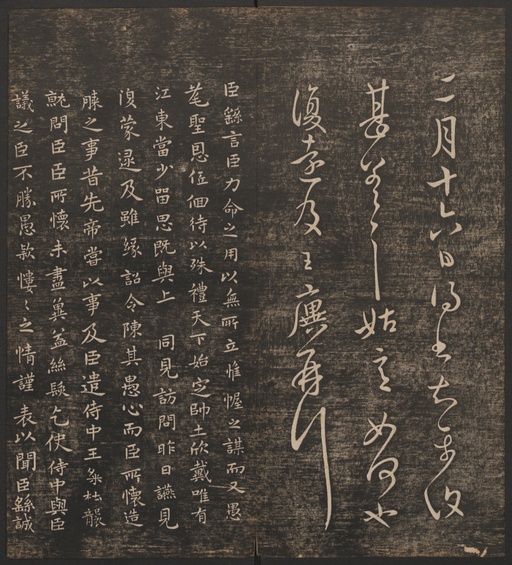 二月十六日得書知
甚姑言如何也
復遠及王廙再行
臣繇言臣力命之用以無所立惟幄之謀而又愚
耄聖恩低佪待以殊禮天下始定帥土欣戴唯有
江東當少留思既與上 同見訪問昨日讌見
復蒙逮及雖緣詔令陳其愚心而臣所懷造
膝之事昔先帝嘗以事及臣遣侍中王粲杜襲
就問臣臣所懷未盡冀益絲髮乞使侍中與臣
議之臣不勝愚款慺〻之情謹 表以聞臣繇誠